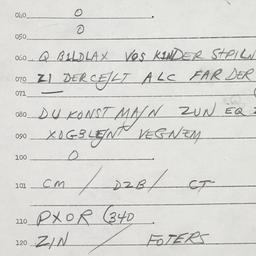 040 0
0
050
060 Q BILDLAX VOS KINDER
070 ZI DERCEJLT ALC FAR DER
071 —
080 DU KONST MAJN ZUN EQ
090 XOGBLEJNT VEGNEM
100 0
101 CM / DZB / CT
110 PXOR (340
120 ZIN / FOTERS